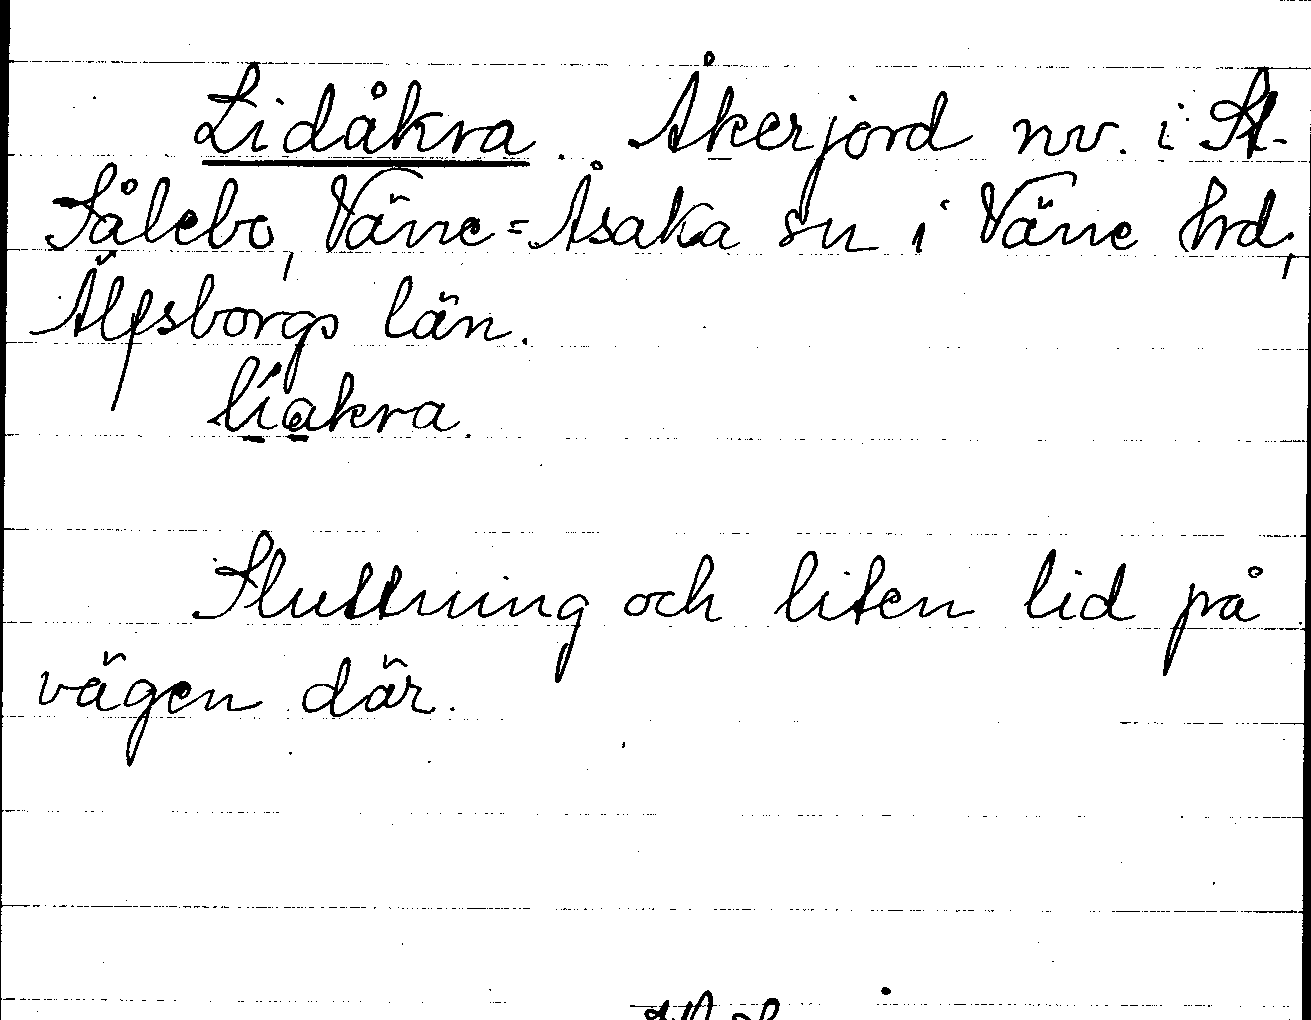 Lidåkra. Åkerjord nv. i St.
Sålebo, Väne=Åsaka sn i Väne hrd,
Älfsborgs län.
líakra.
Sluttning och liten lid på
vägen där.